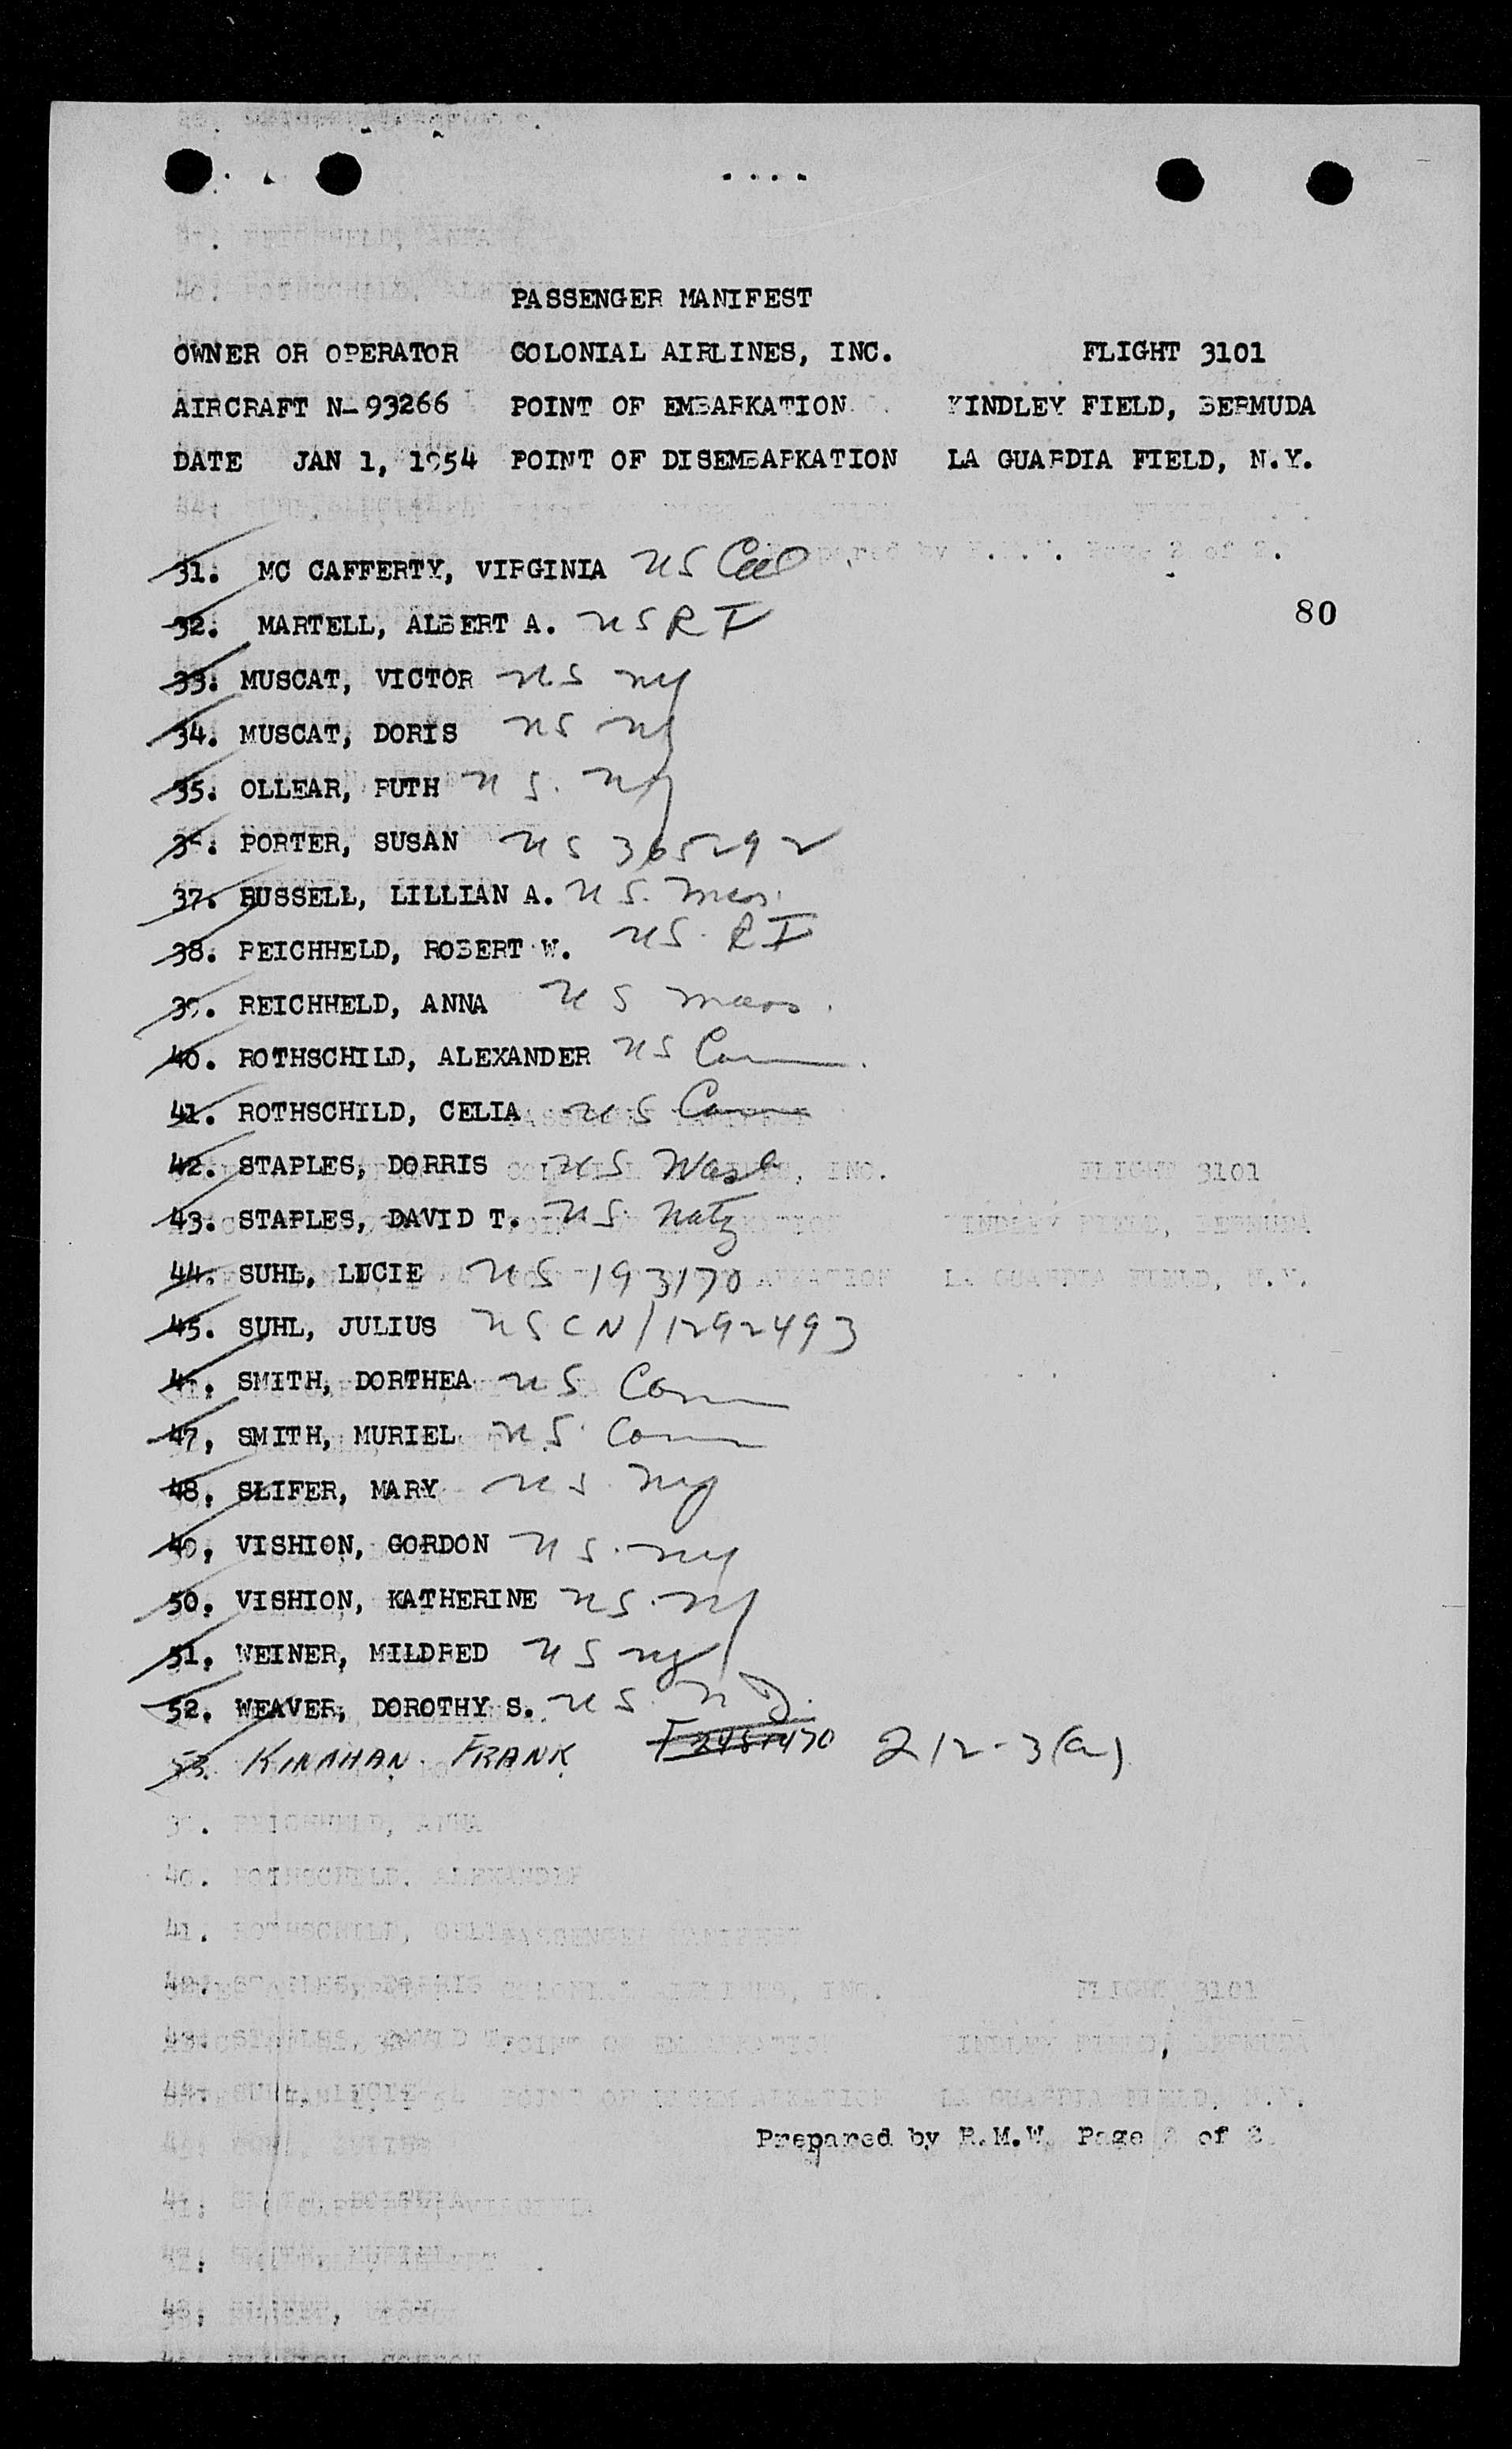 PASSENGER MANIFEST
OWNER OR OPERATOR COLONIAL AIRLINES, INC. FLIGHT 3101
AIRCRAFT N-93266 POINT OF EMBARKATION KINDLEY FIELD, BERMUDA
DATE JAN 1, 1954 POINT OF DISEMBARKATION LA GUARDIA FIELD, N.Y.
31. MC CAFFERTY, VIRGINIA US
80
32. MARTELL, ALBERT A. US RI
33. MUSCAT, VICTOR US ny
34. MUSCAT, DORIS US ny
35. OLLEAR, RUTH US. ny
36. PORTER, SUSAN US 365292
37. RUSSELL, LILLIAN A. US. Mass.
38. REICHHELD, ROBERT W. US. RI
39. REICHHELD, ANNA US Mass.
40. ROTHSCHILD, ALEXANDER US Conn.
41. ROTHSCHILD, CELIA US Conn
42. STAPLES, DORRIS US Wash
43. STAPLES, DAVID T. US Natz
44. SUHL, LUCIE US 193170
45. SUHL, JULIUS US CN/1292493
46. SMITH, DORTHEA US Conn
47, SMITH, MURIEL US Conn
48, SLIFER, MARY US ny
49, VISHION, GORDON US. ny
50, VISHION, KATHERINE US. ny
51, WEINER, MILDRED US ny
52. WEAVER, DOROTHY S. US
53. KINAHAN, FRANK 212-3(a)
Prepared by R.M.W. Page 2 of 2.